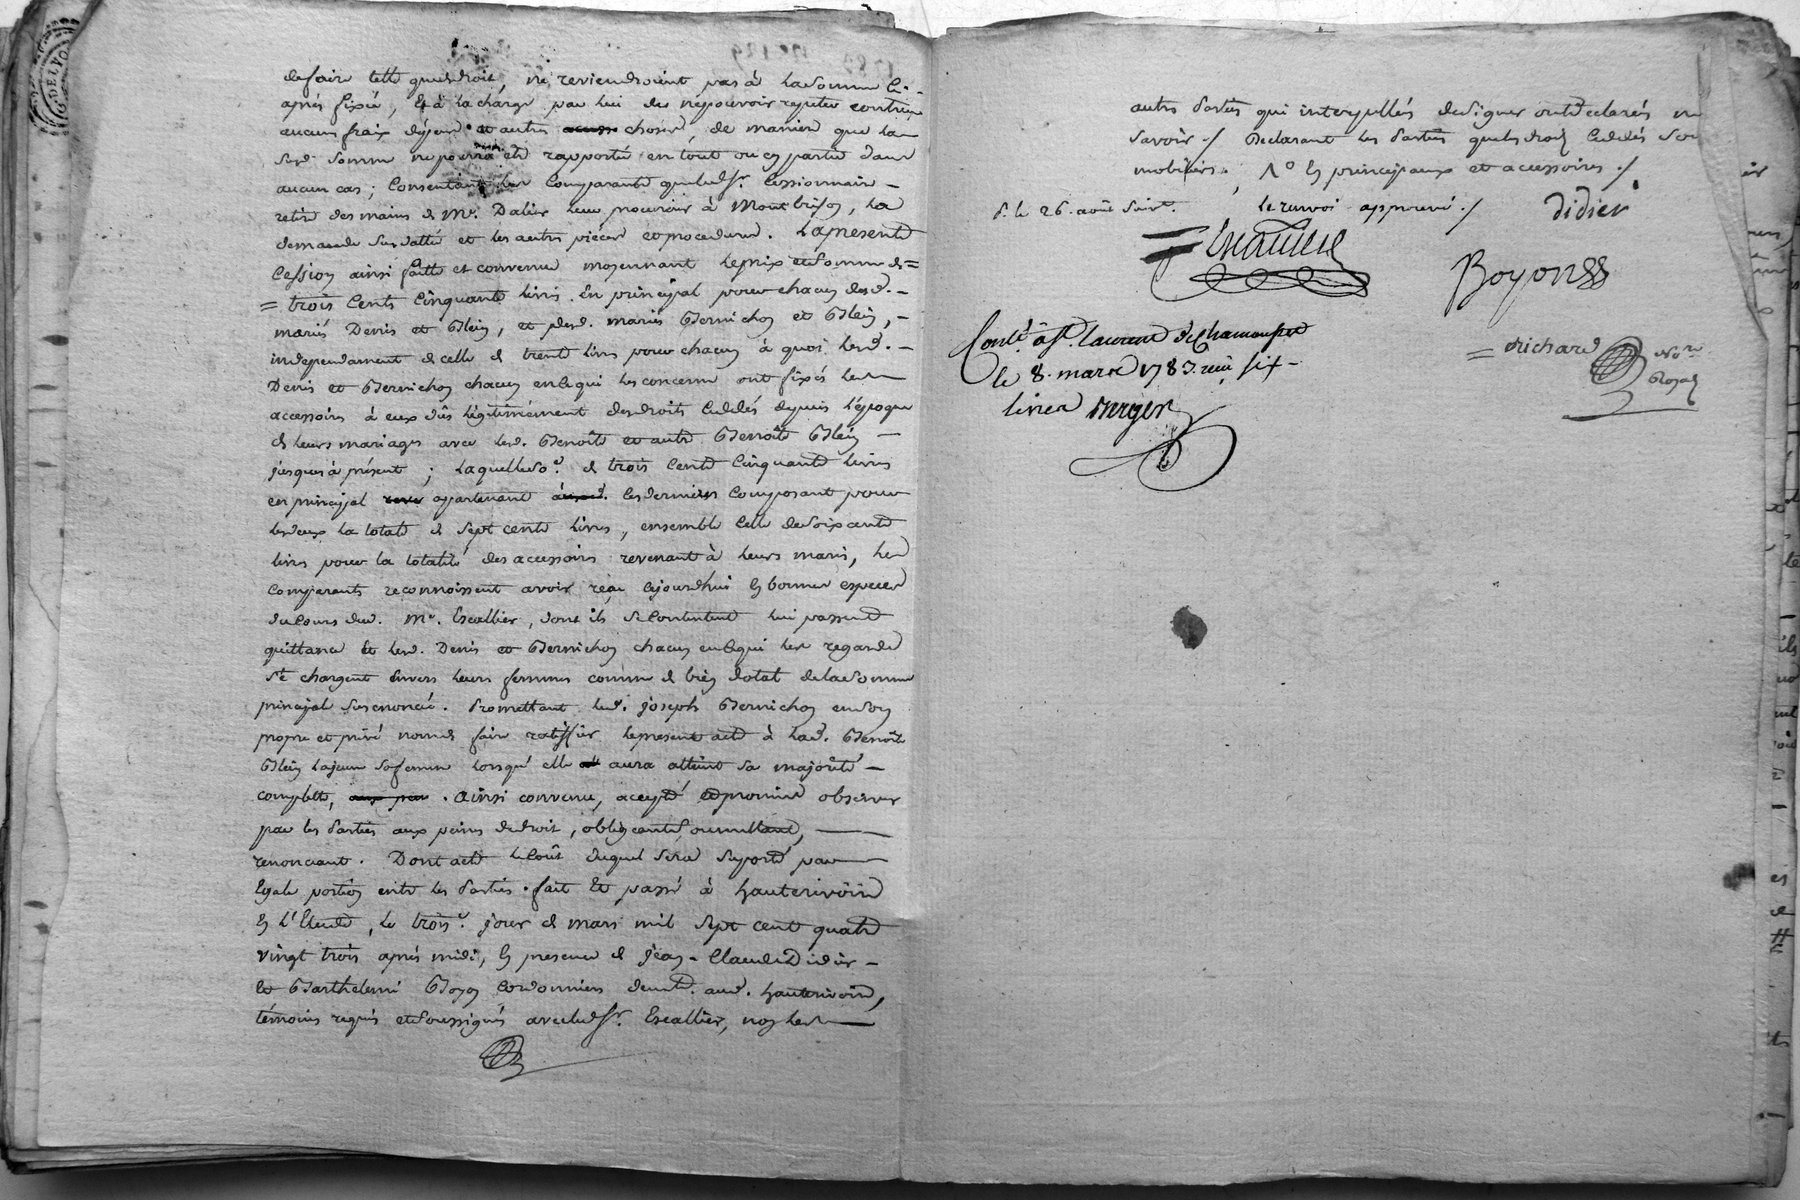 de faire telle que de droit, ne reviendroient pas à la somme ci-
après fixée, et à la charge par lui de ne pouvoir repeter contr'eux
aucuns frais déjeux et autres choses, de maniere que la
susd. somme ne pourra etre rapportée en tout ou en partie dans
aucun cas; Consentant les Comparants que led. Sr. Cessionnaire
retire des mains de Me. Dalier leur procureur à Montbrison, la
demande susdattée et les autres pièces et procedures. La presente
Cession ainsi faitte et convenue moyennant le prix et somme de =
= trois Cents Cinquante livres en principal pour chacun desd.
mariés Denis et Blein, et desd. mariés Bernichon et Blein,
independament de celle de trente livres pour chacun à quoi lesd.
Denis et Bernichon chacun en ce qui les concerne ont fixés les
accessoires à eux dûs légitimément des droits cédés depuis l'époque
de leurs mariages avec lesd. Benoîte et autre Benoîte Blein
jusques à présent; laquelle so.e de trois Cents Cinquante livres
en principal appartenant ces derniers composant pour
les deux la totale de sept cents livres, ensemble celle de soixante
livres pour la totalité des accessoires revenant à leurs maris, les
Comparants reconnoissent avoir reçu cejourd'hui en bonnes especes
du cours dud. Me. Escallier, dont ils se contentent lui passent
quittance et lesd. Denis et Bernichon chacun en ce qui les regarde
se chargent envers leurs femmes comme de bien dotal de la somme
principal susenoncée. Promettant led. joseph Bernichon en son
propre et privé nom de faire ratiffier le present acte à lad. Benoîte
Blein la jeune sa femme lorsqu'elle aura atteint sa majorité
complette, . Ainsi convenu, accepté et promis observer
par les parties aux peines de droit, obligeant soumettant,
renonciant. Dont acte le Coût duquel sera suporté par
Egale portion entre les parties. fait et passé à hauterivoire
en l'Etude, le trois.e jour de mars mil sept cent quatre
vingt trois après midi, en presence de jean-Claude Didier
et Barthelemi Boyon Cordonniers demt. aud. hauterivoire,
témoins requis et soussignés avec led. Sr. Escallier, non les
autres parties qui interpellés de signer ont déclarés ne
savoir ./ Declarant les parties que les droits cédés sont
mobiliers ./
S. le 26. août suivt. le renvoi approuvé ./ didier
Escallier
Boyon
Conlé. à St. Laurent de Chamousset
= Richard Nore.
Royal
le 8. mars 1783. reçu six
livres Berger